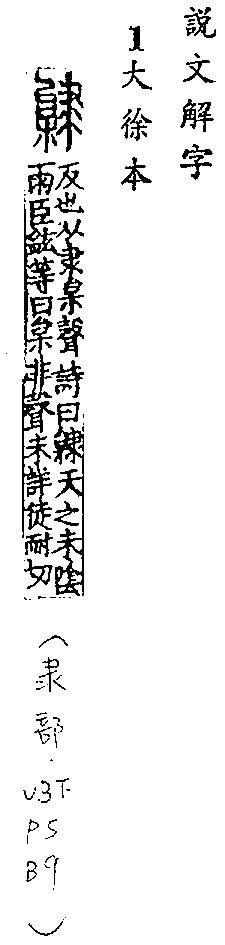 說文解字
1大徐本
𨽿
及也从隶枲聲詩曰𨽿天之未陰
雨臣鉉等曰枲非聲未詳徒耐切
(隶部.V3下P5B9)